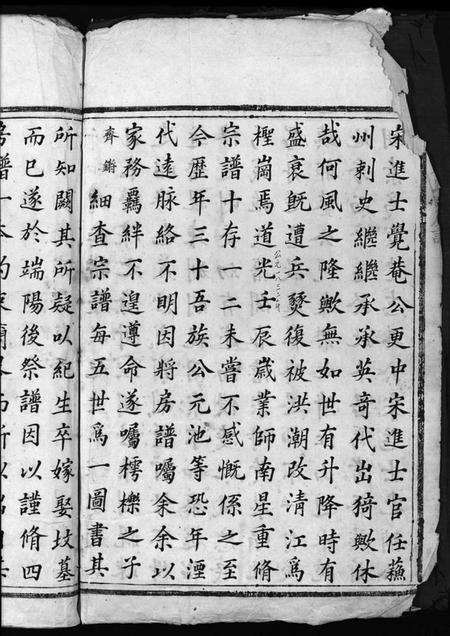 宋進士覺菴公更中宋進士官任蘓
州刺史繼繼承承英奇代出猗歟休
哉何風之隆歟無如世有升降時有
盛衰旣遭兵燹復被洪潮改清江爲
樫崗焉道光壬辰歲業師南星重脩
宗譜十存一二未嘗不感慨係之至
今歷年三十吾族公元池等恐年湮
代遠脉絡不明因將房譜囑余余以
家務羈絆不遑遵命遂囑樗櫟之子
齊鏘細查宗譜每五世爲一圖書其
所知闕其所疑以紀生卒嫁娶坟墓
而已遂於端陽後祭譜因以謹脩四